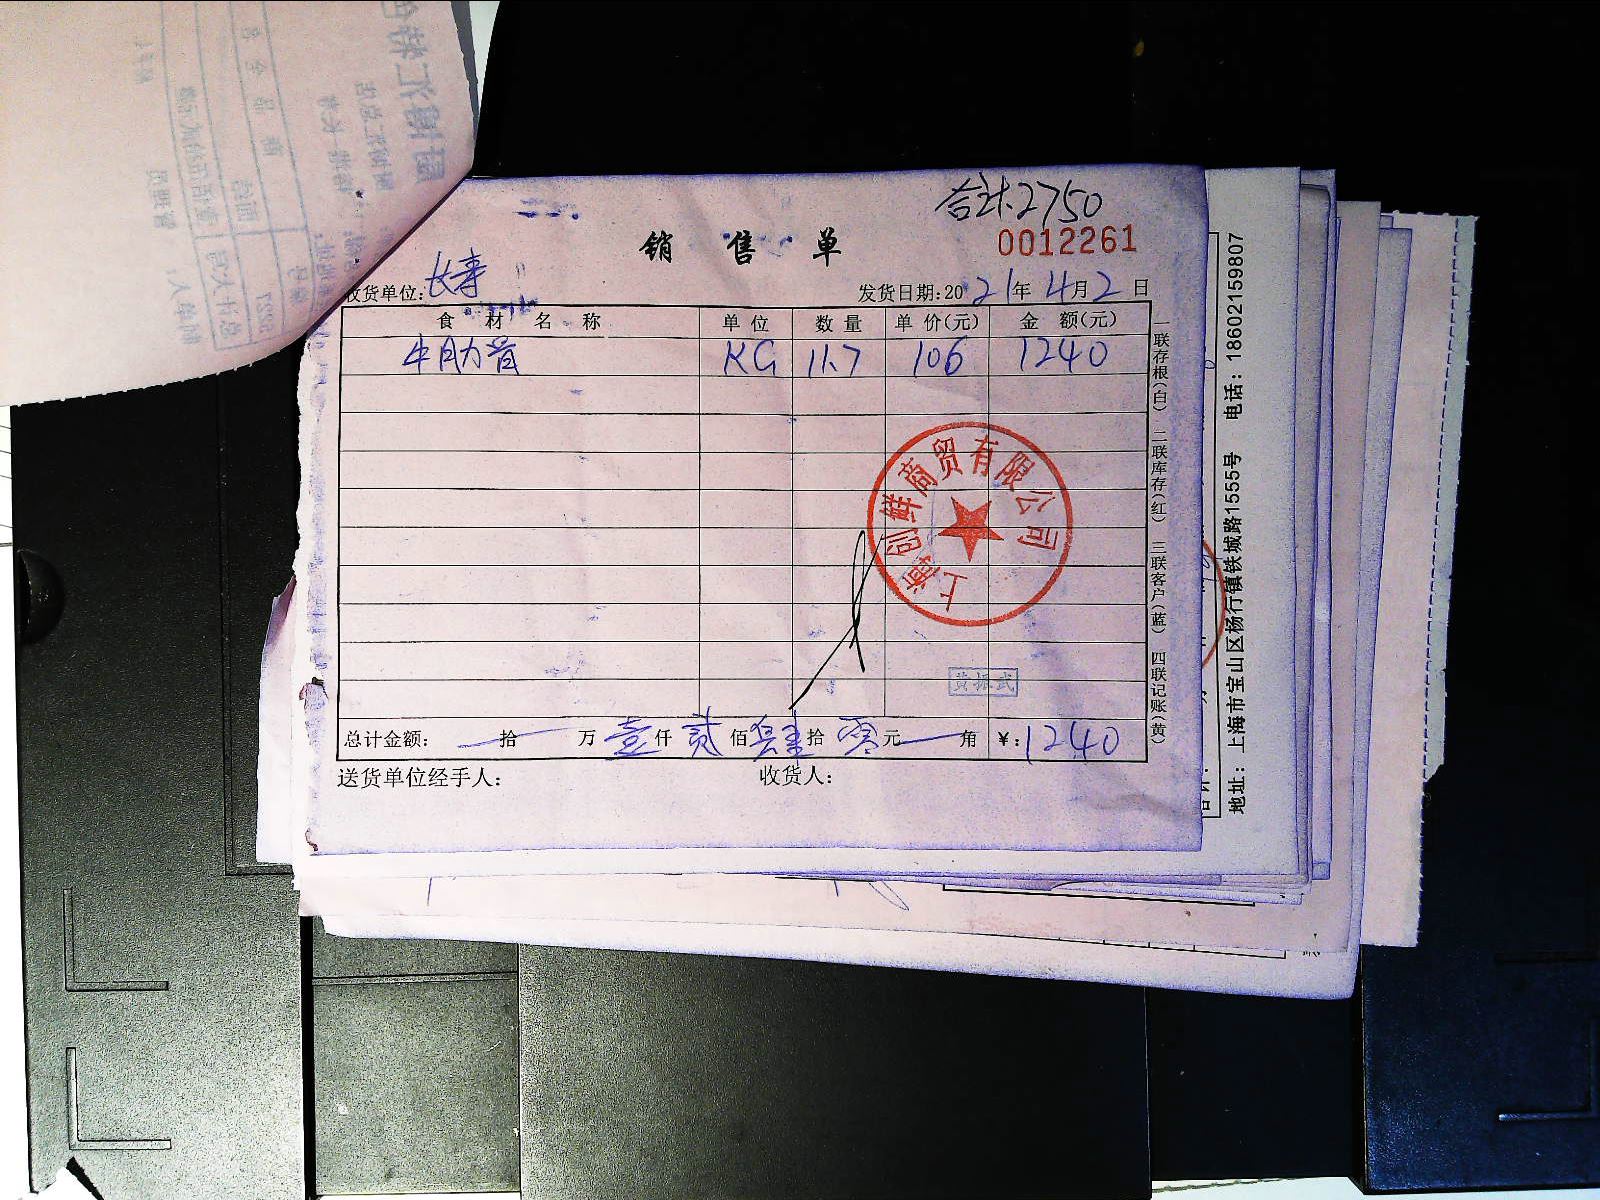 合计2750
销售单
0012261
收货单位:长寿
发货日期:2021年4月2日
食材名称 单位 数量 单价(元) 金额(元)
牛肋音 KG 11.7 106 1240
上海创鲜商贸有限公司
黄振武
总计金额: 拾 万 壹仟 贰佰 肆拾 零元 角 ¥:1240
送货单位经手人: 收货人:
一联存根(白) 二联库存(红) 三联客户(蓝) 四联记账(黄)
地址:上海市宝山区杨行镇铁城路1555号 电话:18602159807